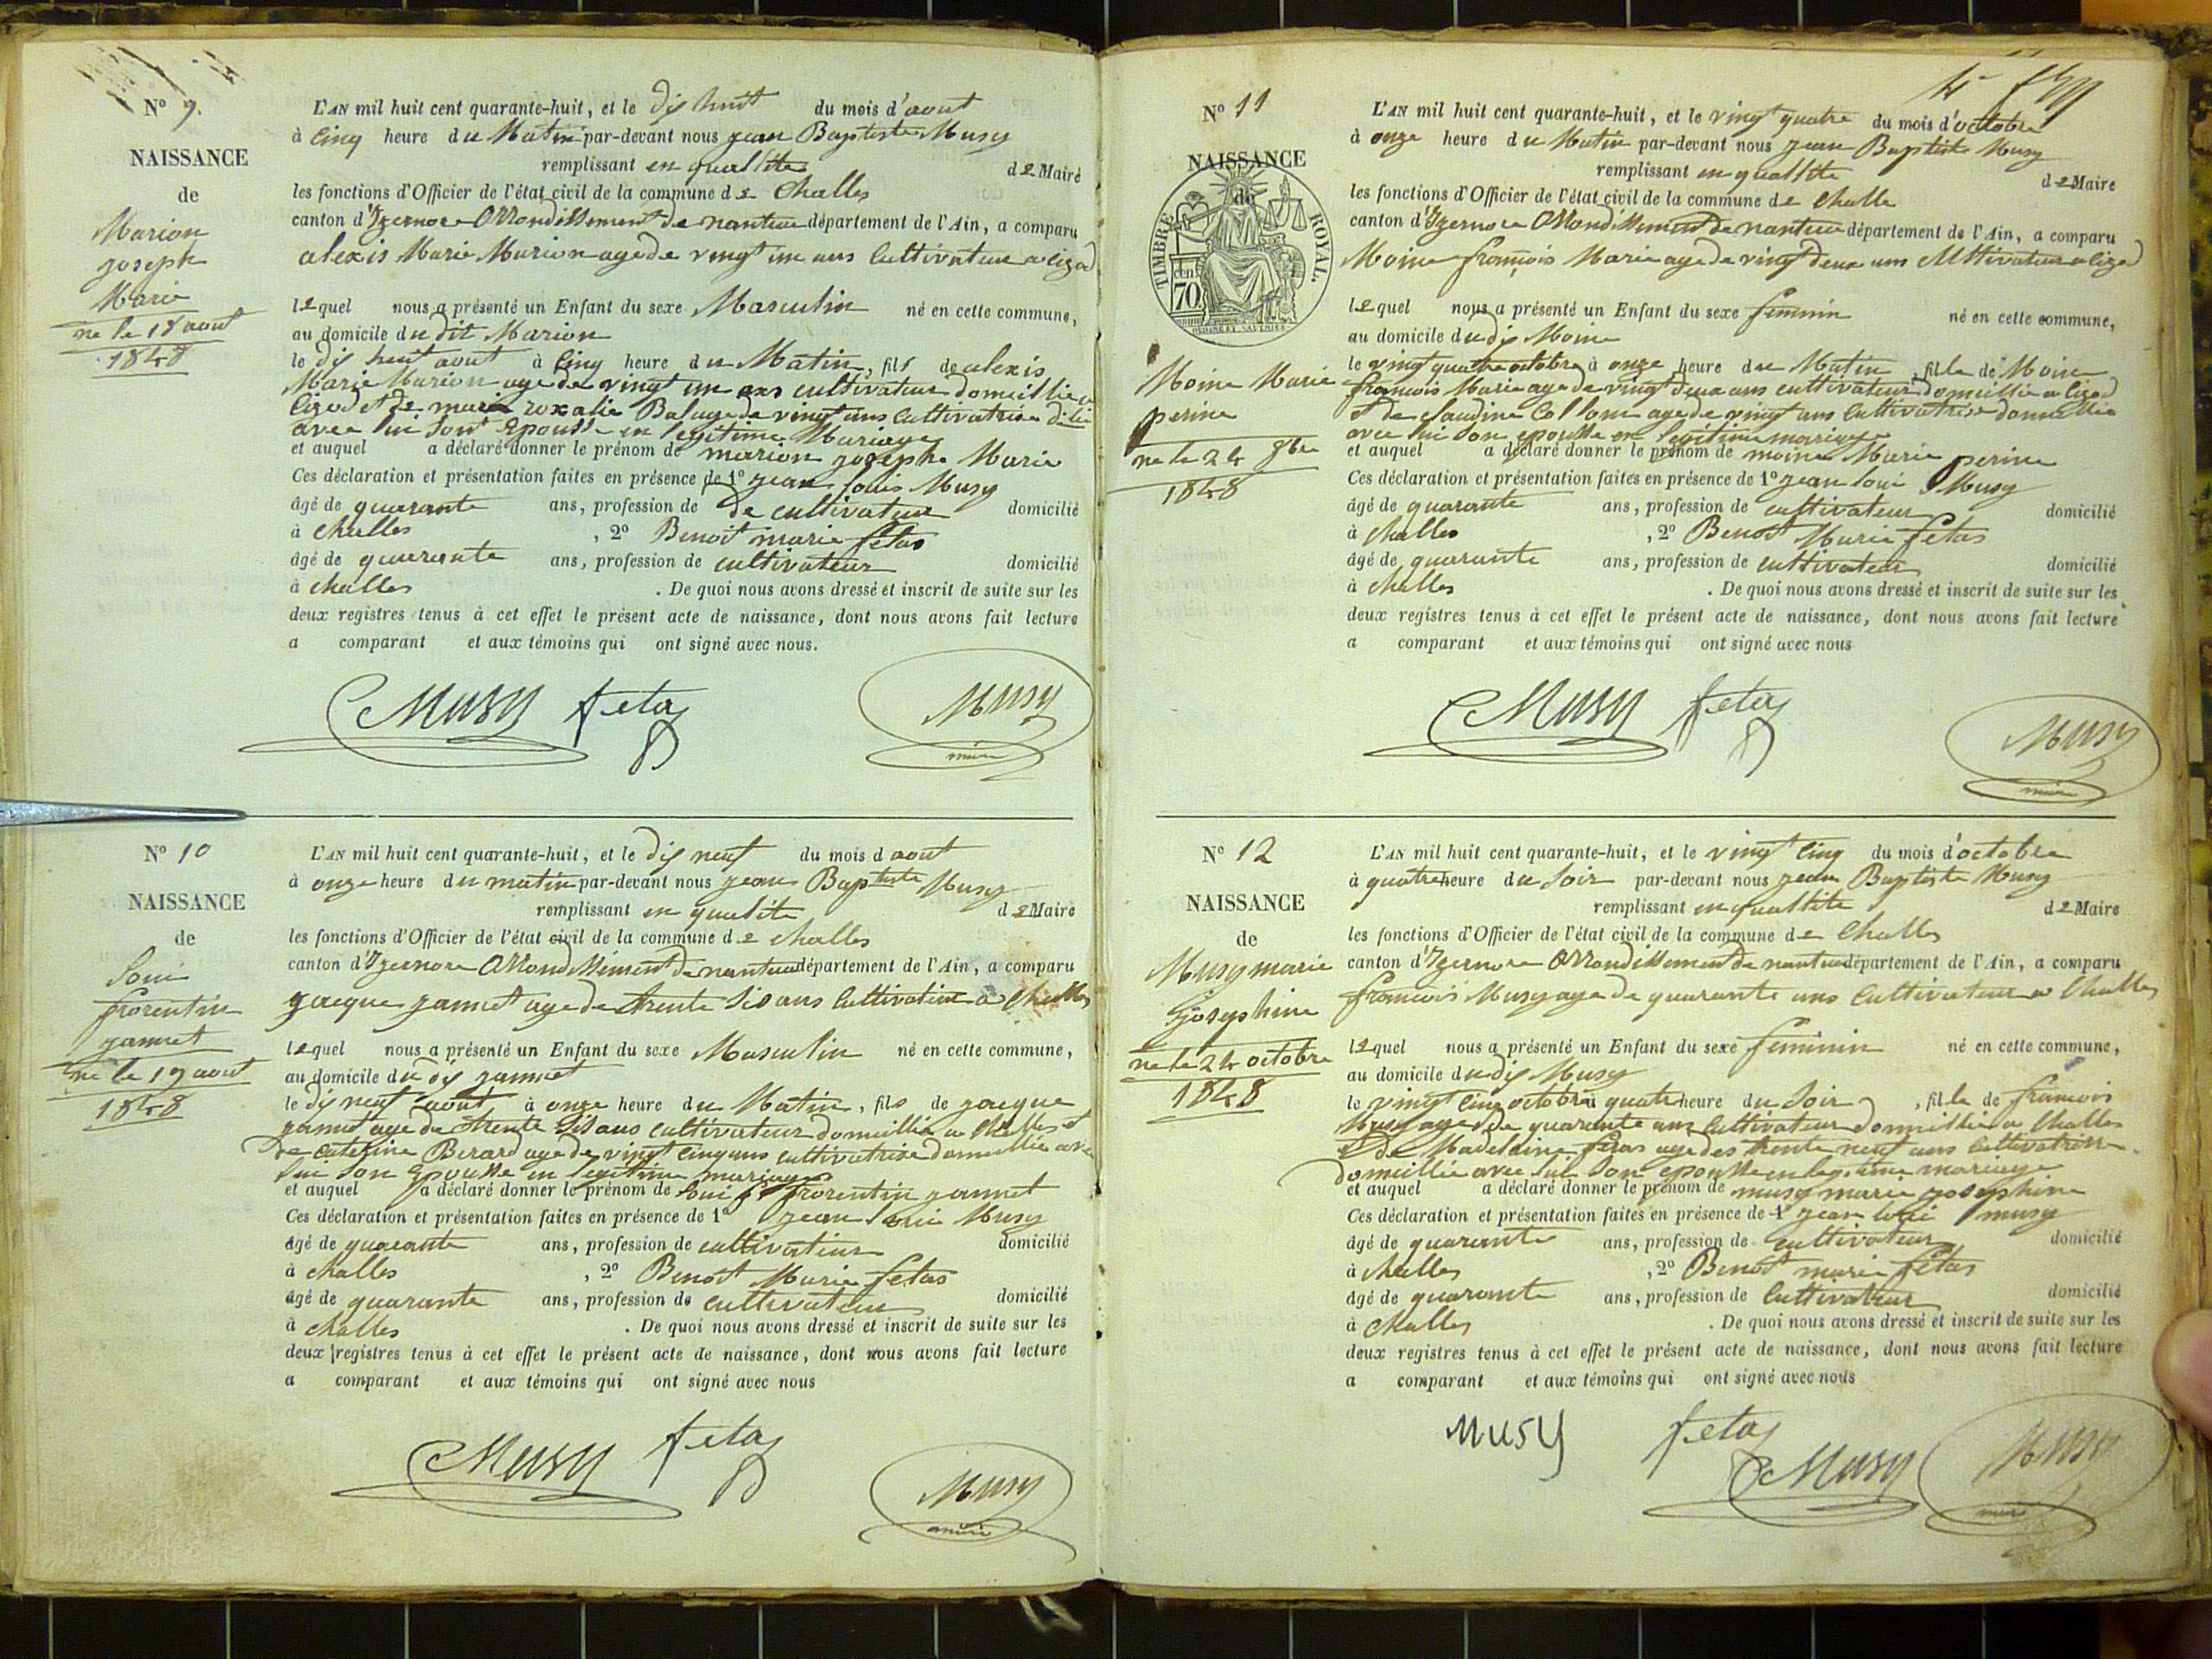 N° 9.
NAISSANCE
de
Marion
joseph
Marie
ne le 18 aout
1848
L'AN mil huit cent quarante-huit, et le dix huit du mois d'aout
à cinq heure du Matin par-devant nous jean Baptiste Musy
remplissant en qualité de Maire
les fonctions d'Officier de l'état civil de la commune de Challes
canton d'Izernore Arrondissement de nantua département de l'Ain, a comparu
alexis Marie Marion age de vingt un ans Cultivateur a
lequel nous a présenté un Enfant du sexe Masculin né en cette commune,
au domicile du dit Marion
le dix huit aout à cinq heure du Matin, fils de alexis
Marie Marion age de vingt un ans cultivateur domicillie a
et de marie roxalie age de vingt ans Cultivatrise
avec lui Son Epousse en legitime Mariage
et auquel a déclaré donner le prénom de marion joseph Marie
Ces déclaration et présentation faites en présence de 1° jean louis Musy
âgé de quarante ans, profession de de cultivateur domicilié
à challes, 2° Benoit marie fetas
âgé de quarante ans, profession de cultivateur domicilié
à challes. De quoi nous avons dressé et inscrit de suite sur les
deux registres tenus à cet effet le présent acte de naissance, dont nous avons fait lecture
a comparant et aux témoins qui ont signé avec nous.
Musy fetas Musy
maire
N° 10
NAISSANCE
de
Loui
frorentin
jannet
ne le 19 aout
1848
L'AN mil huit cent quarante-huit, et le dix neuf du mois d aout
à onze heure du matin par-devant nous jean Baptiste Musy
remplissant en qualité de Maire
les fonctions d'Officier de l'état civil de la commune de challes
canton d'Izernore Arrondissement de nantua département de l'Ain, a comparu
jacque jannet age de trente Sis ans Cultivateur a Challes
lequel nous a présenté un Enfant du sexe Masculin né en cette commune,
au domicile du dis jannet
le dix neuf aout à onze heure du Matin, fils de jacque
jannet age de trente Sis ans cultivateur domicillie a Challes et
de caterine Berard age de vingt cinq ans cultivatrise domicillie avec
lui Son Epousse en legitime mariage
et auquel a déclaré donner le prénom de Loui frorentin jannet
Ces déclaration et présentation faites en présence de 1° jean loui Musy
âgé de quarante ans, profession de cultivateur domicilié
à challes, 2° Benoit Marie fetas
âgé de quarante ans, profession de cultivateur domicilié
à challes. De quoi nous avons dressé et inscrit de suite sur les
deux registres tenus à cet effet le présent acte de naissance, dont nous avons fait lecture
a comparant et aux témoins qui ont signé avec nous
Musy fetas Musy
maire
N° 11
NAISSANCE
de
TIMBRE ROYAL.
70
Moine Marie
perine
ne le 24 8bre
1848
L'AN mil huit cent quarante-huit, et le vingt quatre du mois d'octobre
à onze heure du Matin par-devant nous jean Baptiste Musy
remplissant en quallite de Maire
les fonctions d'Officier de l'état civil de la commune de Challe
canton d'Izernore Arrondissement de nantua département de l'Ain, a comparu
Moine françois Marie age de vingt deux ans Cultivateur a
lequel nous a présenté un Enfant du sexe feminin né en cette commune,
au domicile du dis Moine
le vingt quatre octobre à onze heure du Matin, fille de Moine
françois Marie age de vingt deux ans cultivateur domicillie a
et de claudine Collom age de vingt ans Cultivatrise domicillie
avec lui son epousse en legitime mariage
et auquel a déclaré donner le prénom de moine Marie perine
Ces déclaration et présentation faites en présence de 1° jean loui Musy
âgé de quarante ans, profession de cultivateur domicilié
à challes, 2° Benoit Marie fetas
âgé de quarante ans, profession de cultivateur domicilié
à challes. De quoi nous avons dressé et inscrit de suite sur les
deux registres tenus à cet effet le présent acte de naissance, dont nous avons fait lecture
a comparant et aux témoins qui ont signé avec nous
Musy fetas Musy
maire
N° 12
NAISSANCE
de
Musy marie
josephine
ne le 24 octobre
1848
L'AN mil huit cent quarante-huit, et le vingt cinq du mois d'octobre
à quatre heure du Soir par-devant nous jean Baptiste Musy
remplissant en quallite de Maire
les fonctions d'Officier de l'état civil de la commune de Challes
canton d'Izernore Arrondissement de nantua département de l'Ain, a comparu
francois Musy age de quarante ans Cultivateur a Challes
lequel nous a présenté un Enfant du sexe feminin né en cette commune,
au domicile du dis Musy
le vingt cinq octobre à quatre heure du Soir, fille de francois
Musy age de quarante ans Cultivateur domicillie a Challes
et de Madeleine fetas age des trente neuf ans cultivatrise
domicillie avec lui Son epousse en legitime mariage
et auquel a déclaré donner le prénom de musy marie josephine
Ces déclaration et présentation faites en présence de 1° jean loui musy
âgé de quarante ans, profession de cultivateur domicilié
à challes, 2° Benoit marie fetas
âgé de quarante ans, profession de Cultivateur domicilié
à challes. De quoi nous avons dressé et inscrit de suite sur les
deux registres tenus à cet effet le présent acte de naissance, dont nous avons fait lecture
a comparant et aux témoins qui ont signé avec nous
Musy fetas
Musy Musy
maire